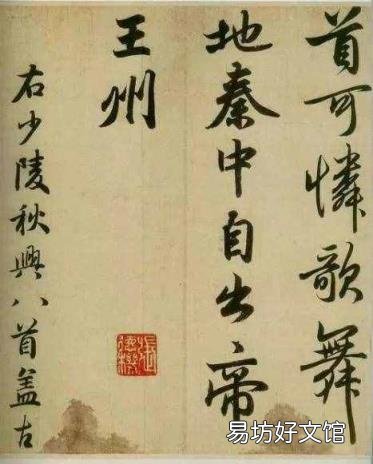 首可憐歌舞
地秦中自古帝
王州
右少陵秋興八首盖古
易坊好文馆